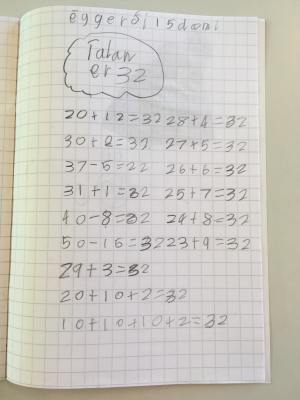 eggerði 15 dæmi
Talan
er 32
20+12=32 28+4=32
30+2=32 27+5=32
37-5=22 26+6=32
31+1=32 25+7=32
40-8=32 24+8=32
50-16=32 23+9=32
29+3=32
20+10+2=32
10+10+10+2=32